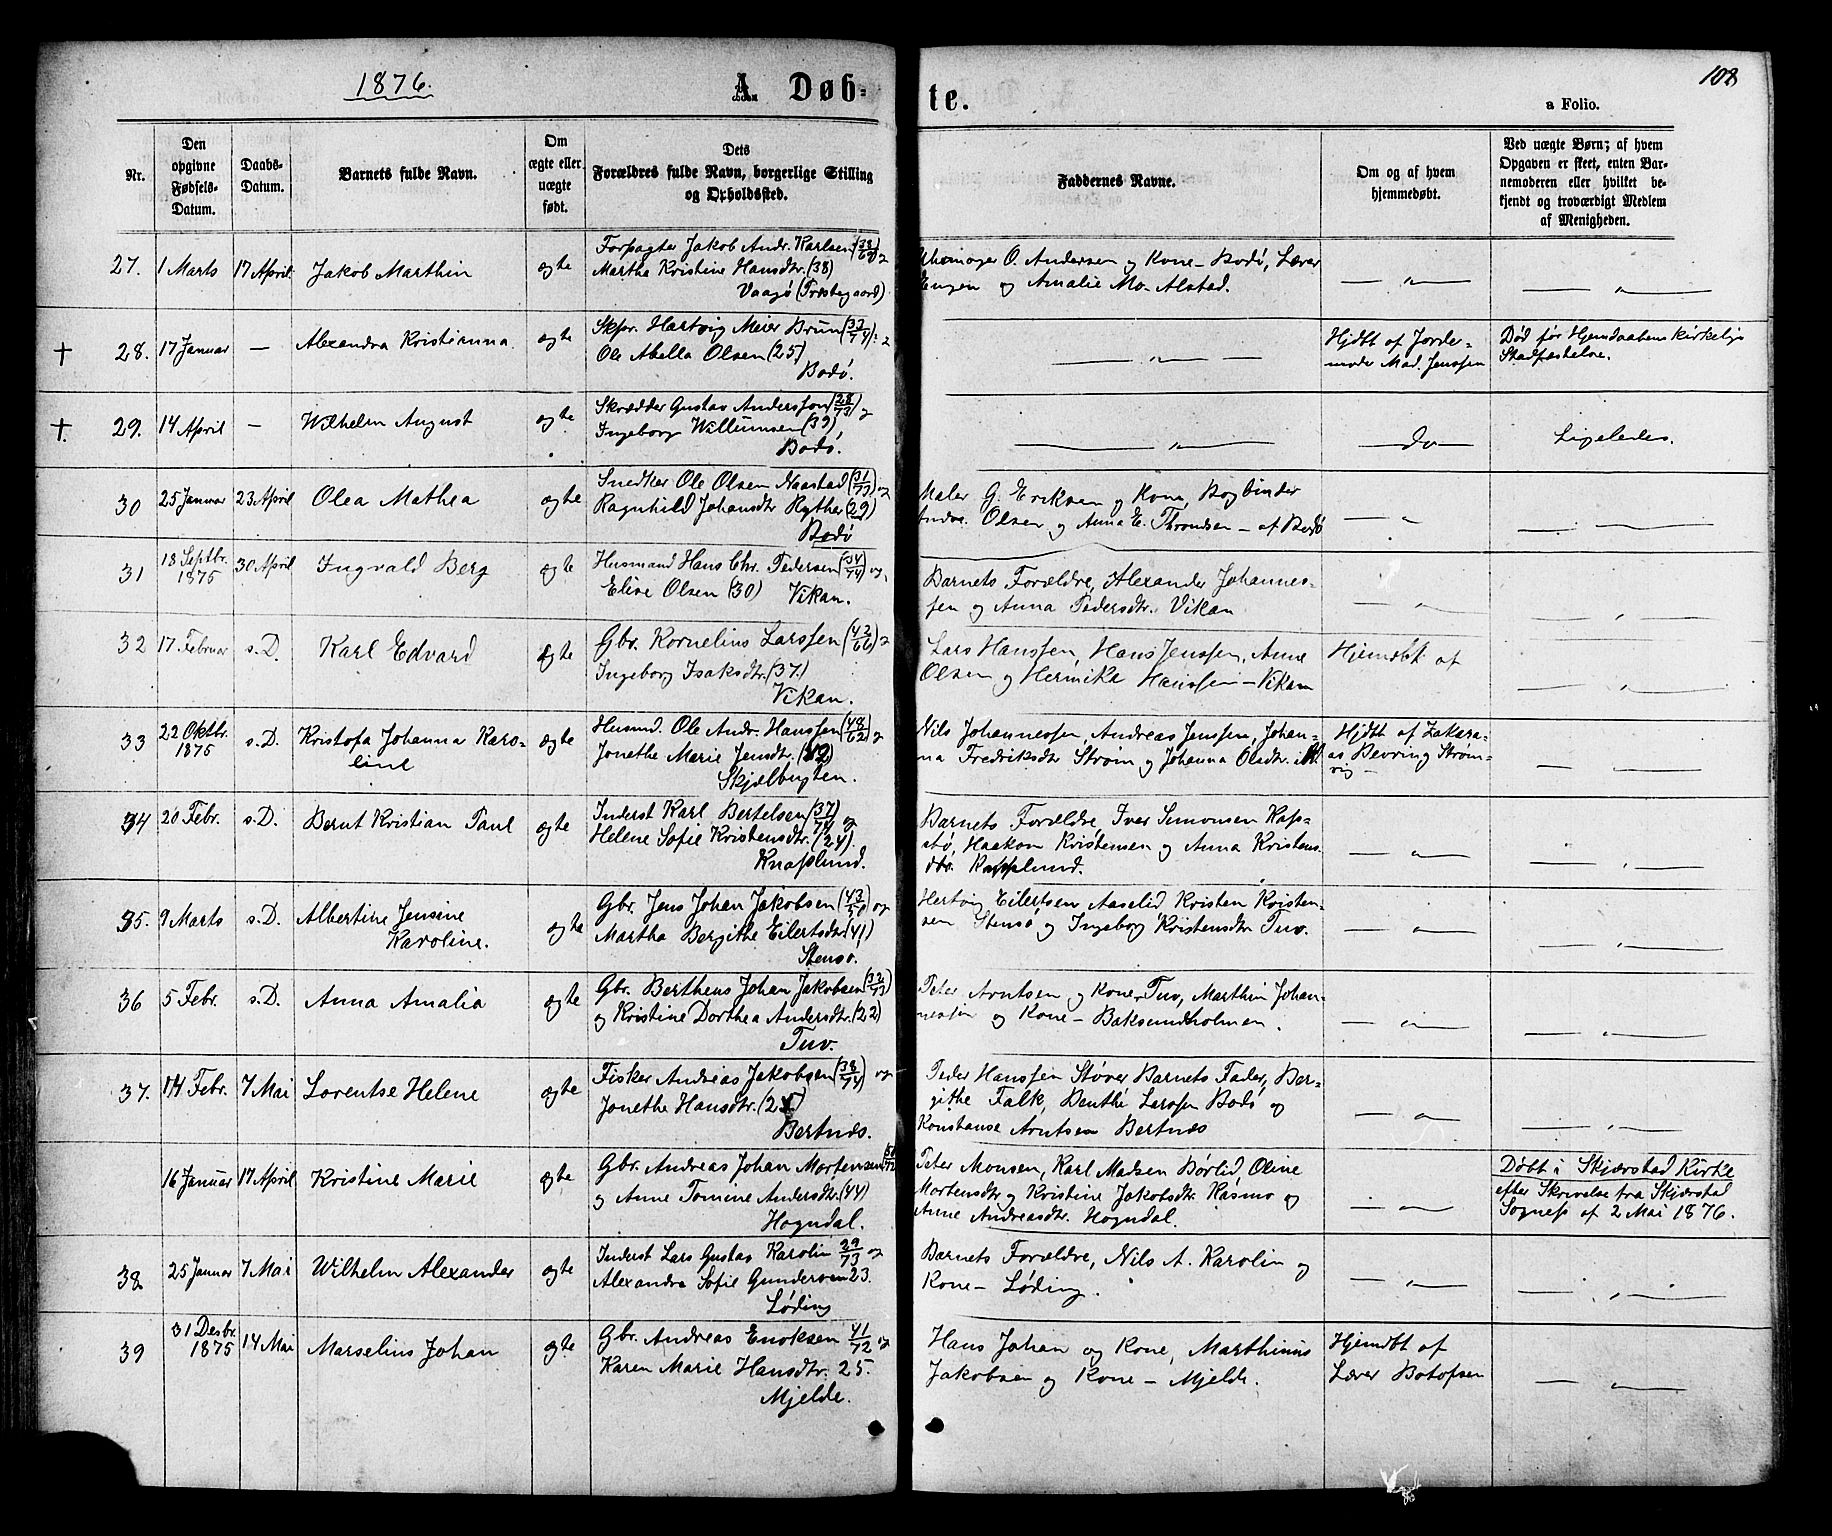 1876.
A. Døb-
te.
108
a Folio.
Nr.
Den
opgivne
Fødsels-
Datum.
Daabs-
Datum.
Barnets fulde Navn.
Om
ægte eller
uægte
født.
Dets
Forældres fulde Navn, borgerlige Stilling
og Opholdssted.
Faddernes Navne.
Om og af hvem
hjemmedøbt.
Ved uægte Børn; af hvem
Opgaven er skeet, enten Bar-
nemoderen eller hvilket be-
kjendt og troværdigt Medlem
af Menigheden.
27. 1 Marts 17 April. Jakob Marthin ægte
Forpagter Jakob Andr. Karlsen (38/64) &
Martha Kristine Hansdtr. (38)
Vaagø (Præstegaard)
O. Andersen og Kone – Bodø, Lærer
Engen og Amalie Mo – Alstad.
— „ —
— „ —
† 28. 17 Januar — Alexandra Kristianna ægte
Skpr. Hartvig Meier Brun (33/74) &
Ole Abella Olsen (25)
Bodø.
— „ —
Hjdbt af Jorde-
moder Mad. Jenssen
Død før Hjemdaabens kirkelige
Stadfæstelse.
†. 29. 14 April — Wilhelm August ægte
Skrædder Gustav Andersson (28/73) &
Ingeborg Willumsen (39)
Bodø.
— „ —
— do —
Ligeledes.
30 25 Januar 23 April Olea Mathea ægte
Snedker Ole Olsen Naastad (31/73) og
Ragnhild Johansdtr Ryther (29)
Bodø
Maler G. Eriksen og Kone, Bogbinder
Andr. Olsen og Anna E. Throndsen – af Bodø
— „ —
— „ —
31 18 Septbr.
1875 30 April Ingvald Berg ægte
Husmand Hans Chr. Pedersen (34/74) og
Eline Olsen (30) Vikan.
Barnets Forældre, Alexander Johannes-
sen og Anna Pedersdtr. Vikan
— „ —
— „ —
32 17 Februar s.D. Karl Edvard ægte
Gbr. Kornelius Larssen (42/66) &
Ingeborg Isaksdtr. (37.)
Vikan.
Lars Hanssen, Hans Jenssen, Anne
Olsen og Hermika Hanssen – Vikan
Hjemdbt af
— „ —
33 22 Oktbr.
1875 s.D. Kristofa Johanna Karo-
line ægte
Husmd. Ole Andr. Hanssen (48/62) &
Jonethe Marie Jensdtr. (42)
Skjælbugten.
Nils Johannessen, Andreas Jenssen, Johan-
na Fredriksdtr Strøm og Johanna Olsdtr.
Hjdbt af Zakari-
as Bevring Strøm-
vig –
— „ —
34 20 Febr. s.D. Bernt Kristian Paul ægte
Inderst Karl Bertelsen (37/74) og
Helene Sofie Kristensdtr. (24).
Knaplund.
Barnets Forældre, Iver Simonsen Kap-
stø, Haakon Kristensen og Anna Kristens-
dtr. Knapplund.
— „ —
— „ —
35. 9 Marts s.D. Albertine Jensine
Karoline. ægte
Gbr. Jens Johan Jakobsen (43/50) og
Martha Bergithe Eilertsdtr (41)
Stensø.
Hertvig Eilertsen Aaselid Kristen Kristen-
sen Stensø og Ingeborg Kristensdtr Tuv.
— „ —
— „ —
36 5 Febr. s.D. Anna Amalia ægte
Gbr. Bertheus Johan Jakobsen (32/73)
og Kristine Dorthea Andersdtr. (22)
Tuv.
Peter Arntsen og Kone, Tuv, Marthin Johan-
nessen og Kone – Baksundholmen.
— „ —
— „ —
37. 14 Febr. 7 Mai Lorentse Helene ægte
Fisker Andreas Jakobsen (38/74) og
Jonethe Hansdtr.
Bertnæs.
Peder Hanssen Støver Barnets Fader, Ber-
githe Falk, Benthe Larssen Bodø og
Konstanse Arntsen Bertnæs
— „ —
— „ —
16 Januar 17 April Kristine Marie ægte
Gbr. Andreas Johan Mortensen
og Anne Tomine Andersdtr. (44)
Hogndal.
Peter Monsen, Karl Madsen Børlid, Oline
Mortensdtr og Kristine Jakobsdtr. Kasmo og
Anne Andreasdtr. Hogndal.
— „ —
Døbt i Skjærstad Kirke
efter Skrivelse fra Skjærstad
Sognep af 2 Mai 1876.
38. 25 Januar 7 Mai Wilhelm Alexander ægte
Inderst Lars Gustav Karolin 29/73 og
Alexandra Sofie Gundersen 23.
Løding
Barnets Forældre, Nils A. Karolin og
Kone – Løding.
— „ —
— „ —
39 31 Desbr.
1875 14 Mai Marselius Johan ægte
Gbr. Andreas Enoksen 41/72 og
Karen Marie Hansdtr. 25.
Mjelde.
Hans Johan og Kone, Marthinus
Jakobsen og Kone – Mjelde.
Hjemdbt af
Lærer Botofsen
— „ —